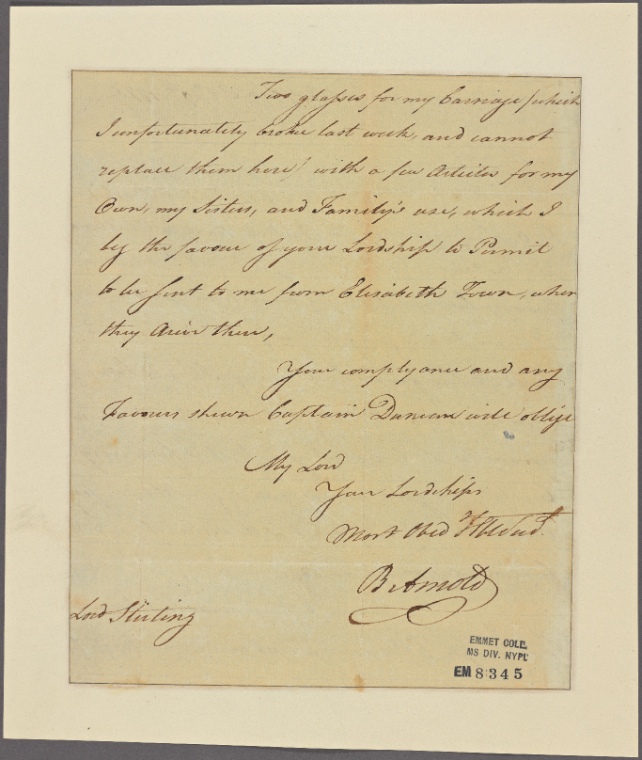 Two glasses for my Carriage (which
I unfortunately broke last week, and cannot
replace them here) with a few Articles for my
Own, my Sisters, and Family's use, which I
beg the favour of your Lordship to Permit
to be sent to me from Elisabeth Town, when
they Arive there,
Your complyance and any
Favours shewn Captain Duncan will oblige
My Lord
Your Lordships
Most Obed. H'ble Serv.t
B Arnold
Lord Stirling
EMMET COLL.
MS DIV. NYPL
EM 8345